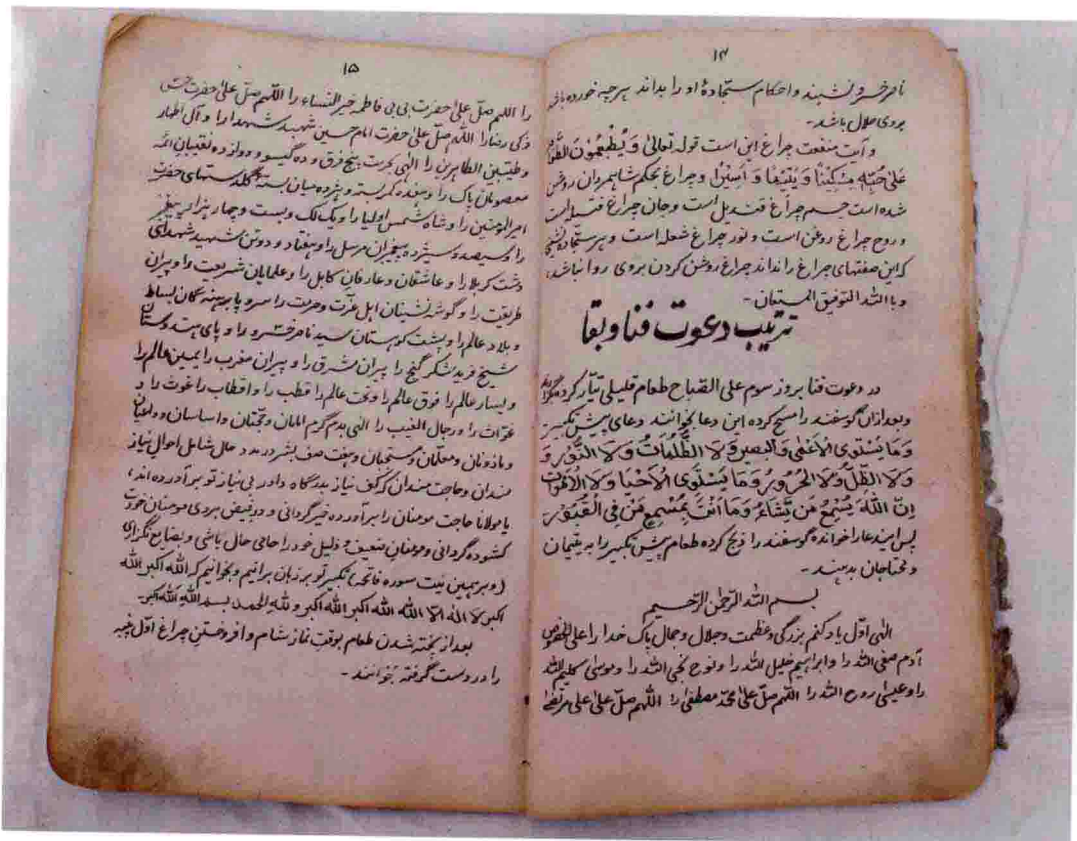 ۱۴
ناصر خسرو نشیند و احکام سجّادهٔ او را بداند هرچه خورده باشد
بروی حلال باشد۔
و آیت منفعت چراغ این است قوله تعالیٰ وَ یُطْعِمُوْنَ الطَّعَامَ
عَلیٰ حُبِّهٖ مِسْکِیْنًا وَّ یَتِیْمًا وَّ اَسِیْرًا و چراغ بحکم شاهمردان روشن
شده است جسم چراغ قندیل است و جان چراغ فتیله است
و روح چراغ روغن است و نور چراغ شعله است و هر سجّاده نشینی
که این صفتهای چراغ را نداند چراغ روشن کردن بروی روا نباشد،
و بالله التوفیق المستعان۔
ترتیب دعوت فنا و بقا
در دعوت فنا بروز سوم علی الصّباح طعام قلیلی تیّار کرده
و بعد ازان گوسفند را مسح کرده این دعا بخوانند دعای پیش تکبیر
وَمَا یَسْتَوِی الْاَعْمٰی وَالْبَصِیْرُ وَلَا الظُّلُمٰتُ وَلَا النُّوْرُ وَ
وَلَا الظِّلُّ وَلَا الْحَرُوْرُ وَمَا یَسْتَوِی الْاَحْیَآءُ وَلَا الْاَمْوَاتُ
اِنَّ اللّٰهَ یُسْمِعُ مَنْ یَّشَآءُ وَمَا اَنْتَ بِمُسْمِعٍ مَّنْ فِی الْقُبُوْرِ
پس اینعا را خوانده گوسفند را ذبح کرده طعام پیش تکبیر را به یتیمان
و محتاجان بدهند۔
بسم الله الرّحمٰن الرّحیم
الٰهی اوّل یاد کنم بزرگی و عظمت و جلال و جمال پاک خدا را علی الخصوص
آدم صفی الله را و ابراهیم خلیل الله را و نوح نجی الله را و موسٰی کلیم الله
را و عیسٰی روح الله را اللّٰهم صلّ علیٰ محمّد مصطفٰی را اللّٰهم صلّ علیٰ علی مرتضٰی
۱۵
را اللّٰهم صلّ علیٰ حضرت بی بی فاطمه خیر النّساء را اللّٰهم صلّ علیٰ حضرت حسن
زکی رضا را اللّٰهم صلّ علیٰ حضرت امام حسین شهید شهدا را و آل اطهار
و طیّبین الطاهرین را الٰهی بحرمت پنج فرق و ده گیسو و دوازده نقیبان ائمّه
معصومان پاک را و هفده کربسته و پنزده میان بسته گلدستهای حضرت
امیرالمؤمنین را و شاه شمس اولیا را و یک لک و بیست و چهار هزار پیغمبر
را و سیصد و سیزده پیغمبران مرسل را و هفتاد و دو تن شهید شهدای
دشت کربلا را و عاشقان و عارفان کابل را و علمایان شریعت و او پیران
طریقت را و گوشه نشینان اهل عزّت و حرمت را سر و پا برهنه گان بساط
و بلاد عالم را و پشت کوهستان سید ناصر خسرو را و پای هندوستان
شیخ فرید شکر گنج را پیران مشرق را و پیران مغرب را یمین عالم را
و یسار عالم را فوق عالم را و تحت عالم را قطب را و اقطاب را غوث را و
غوّاث را و رجال الغیب را الٰهی بدم گرم امامان و حجّتان و اساسان و داعیان
و ماذونان و معلّمان و مستجیبان و هفت صف بشر در مدد حال شامل احوال نیاز
مندان و حاجت مندان که کف نیاز بدرگاه داور بی نیاز تو برآورده اند،
یا مولانا حاجت مومنان را برآورده خیر گردانی و در فیض بروی مومنان خود
کشوده گردانی و مومنان ضعیف و ذلیل خود را حامی حال باشی و بضایع نگزاری
(و بر همین نیت سوره فاتحه) تکبیر تو بر زبان برانیم و بخوانیم که الله اکبر الله
اکبر لا اله الا الله الله اکبر الله اکبر و لله الحمد بسم الله الله اکبر۔
بعد از پخته شدن طعام بوقت نماز شام و افروختن چراغ اوّل پنبه
را در دست گرفته بخوانند۔